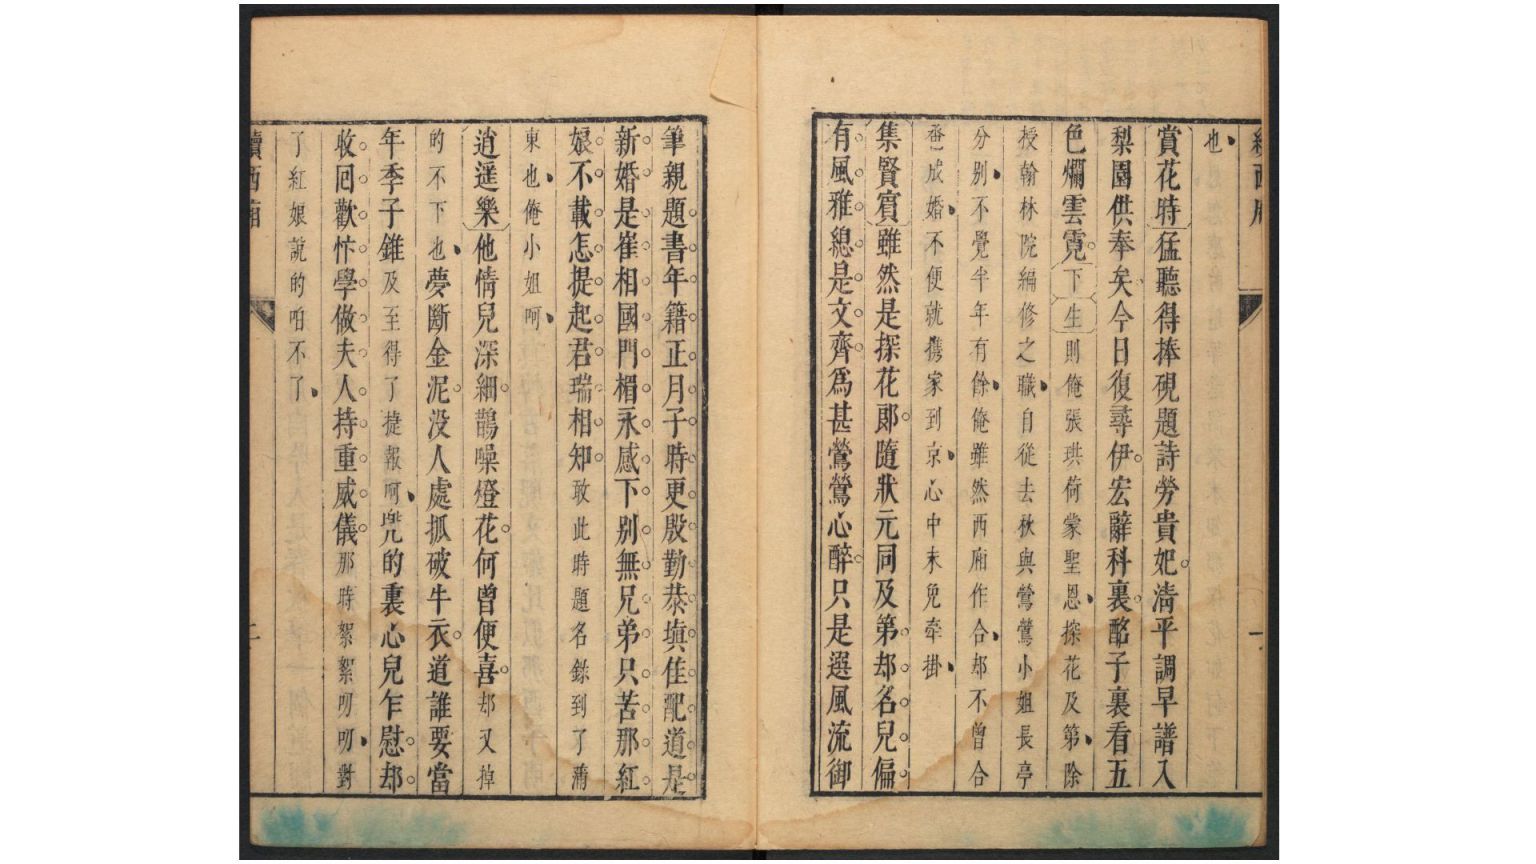 續西廂
一
也
賞花時猛聽得捧硯題詩勞貴妃淸平調早譜入
梨園供奉矣今日復尋伊宏辭科裏酩子裏看五
色爛雲霓下生則俺張珙荷蒙聖恩探花及第除
授翰林院編修之職自從去秋與鶯鶯小姐長亭
分别不覺半年有餘俺雖然西廂作合却不曾合
巹成婚不便就攜家到京心中未免牽掛
集賢賔雖然是探花郞隨狀元同及第却名兒偏
有風雅緫是文齊爲甚鶯鶯心醉只是選風流御
筆親題書年籍正月子時更殷勤恭塡佳配道是
新婚是崔相國門楣永感下别無兄弟只苦那紅
娘不載怎提起君瑞相知敢此時題名錄到了蒲
東也俺小姐呵
逍遥樂他情兒深細鵲噪燈花何曾便喜却又掉
的不下也夢斷金泥没人處抓破牛衣道誰要當
年季子錐及至得了㨗報呵兠的裏心兒乍慰却
收囘歡忭學做夫人持重威儀那時絮絮叨叨對
了紅娘說的咱不了
續西廂
二